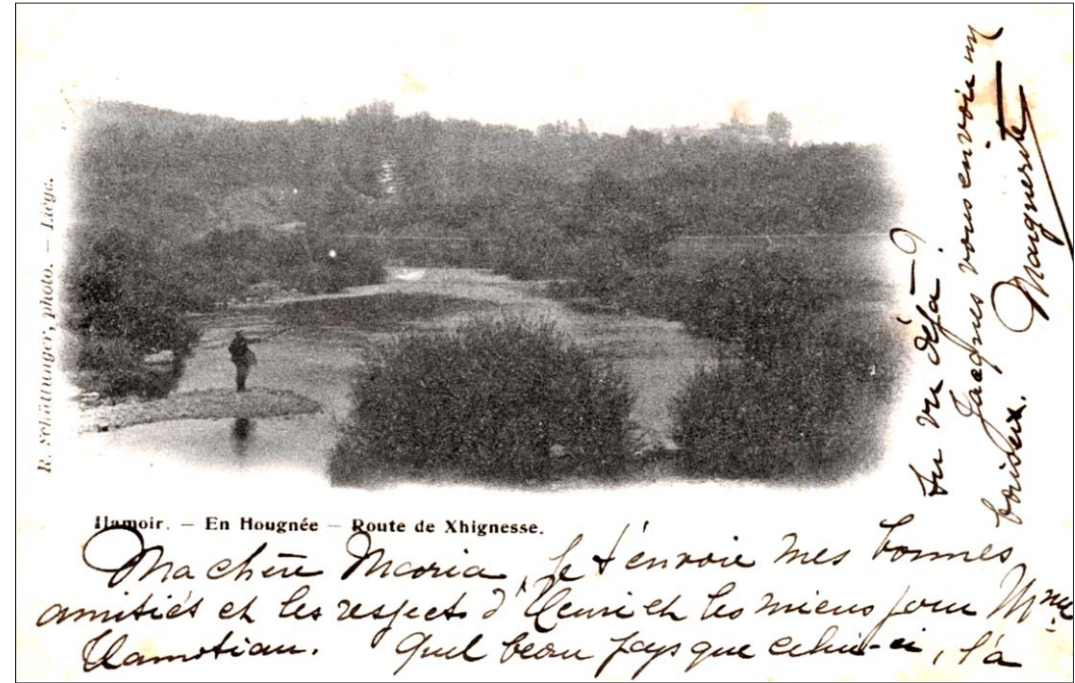 R. Schüttringer, photo. – Liège.
Hamoir. – En Hougnée – Route de Xhignesse.
Ma chère Maria, je t'envoie mes bonnes
amitiés et les respects d'Henri et les miens pour Mme
Quel beau pays que celui-ci, l'a
tu vu déjà – ?
Jacques vous envoie un
baiser.
Marguerite